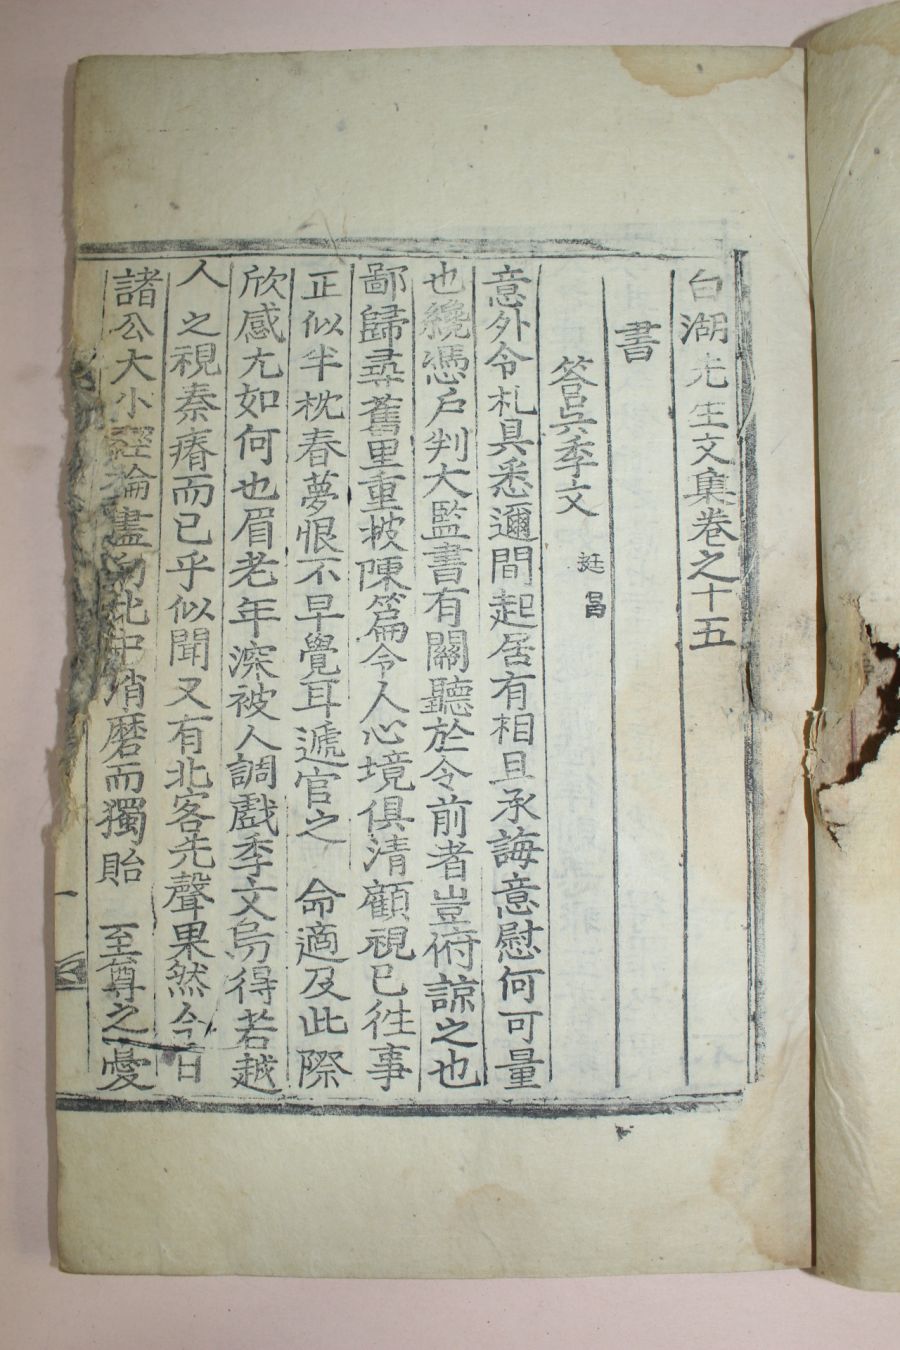 白湖先生文集卷之十五
書
答吳季文 挺昌
意外令札具悉邇間起居有相且承誨意慰何可量
也纔憑戶判大監書有關聽於令前者豈俯諒之也
鄙歸尋舊里重披陳篇令人心境俱清顧視已往事
正似半枕春夢恨不早覺耳遞官之 命適及此際
欣感尤如何也眉老年深被人調戲季文烏得若越
人之視秦瘠而已乎似聞又有北客先聲果然今日
諸公大小經綸盡 此中消磨而獨貽 至尊之憂